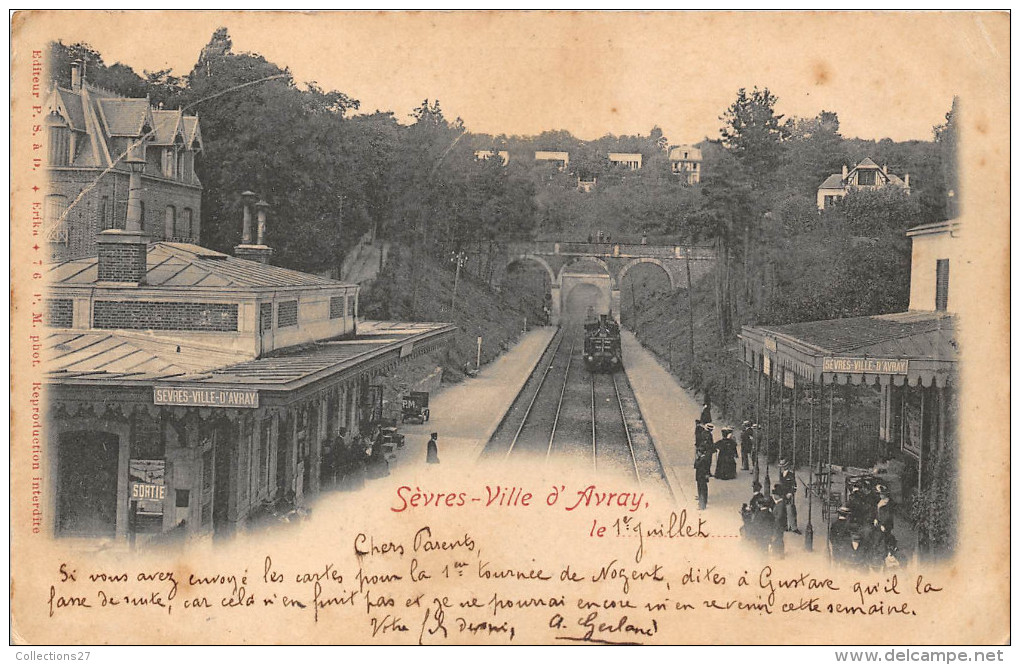 Editeur P. S. à D. ✦ Erika ✦ 76 P. M. phot. Reproduction interdite
SÈVRES-VILLE-D'AVRAY
SÈVRES-VILLE-D'AVRAY
SORTIE
Sèvres-Ville d'Avray
le 1er Juillet
Chers Parents,
Si vous avez envoyé les cartes pour la 1ère tournée de Nogent, dites à Gustave qu'il la
fasse de suite, car cela n'en finit pas et je ne pourrai encore m'en revenir cette semaine.
Votre fils
A. Gerland
Collections27
http://www.delcampe.net